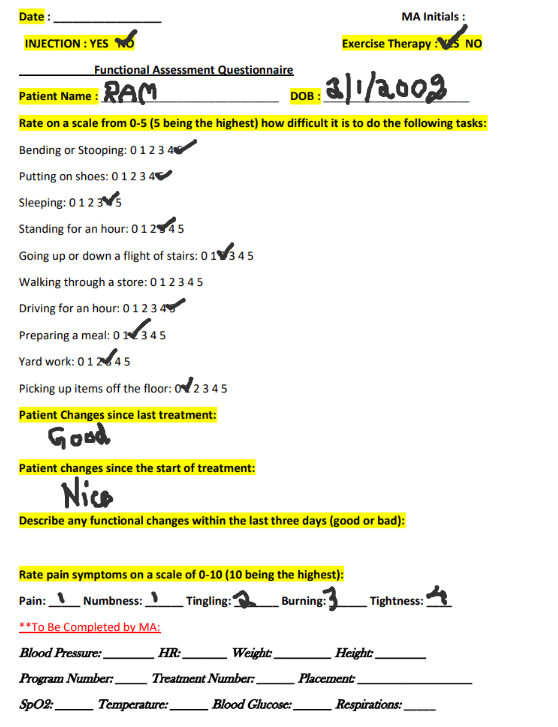 Date : ________________ MA Initials :
INJECTION : YES NO Exercise Therapy : YES NO
Functional Assessment Questionnaire
Patient Name : RAM DOB : 2/1/2002
Rate on a scale from 0-5 (5 being the highest) how difficult it is to do the following tasks:
Bending or Stooping: 0 1 2 3 4 5
Putting on shoes: 0 1 2 3 4 5
Sleeping: 0 1 2 3 4 5
Standing for an hour: 0 1 2 3 4 5
Going up or down a flight of stairs: 0 1 2 3 4 5
Walking through a store: 0 1 2 3 4 5
Driving for an hour: 0 1 2 3 4 5
Preparing a meal: 0 1 2 3 4 5
Yard work: 0 1 2 3 4 5
Picking up items off the floor: 0 1 2 3 4 5
Patient Changes since last treatment:
Good
Patient changes since the start of treatment:
Nice
Describe any functional changes within the last three days (good or bad):
Rate pain symptoms on a scale of 0-10 (10 being the highest):
Pain: 1 Numbness: 1 Tingling: 2 Burning: 3 Tightness: 4
**To Be Completed by MA:
Blood Pressure: ________ HR: _______ Weight: ________ Height: ________
Program Number: _____ Treatment Number: _____ Placement: ________________
SpO2: ______ Temperature: ______ Blood Glucose: ______ Respirations: _____